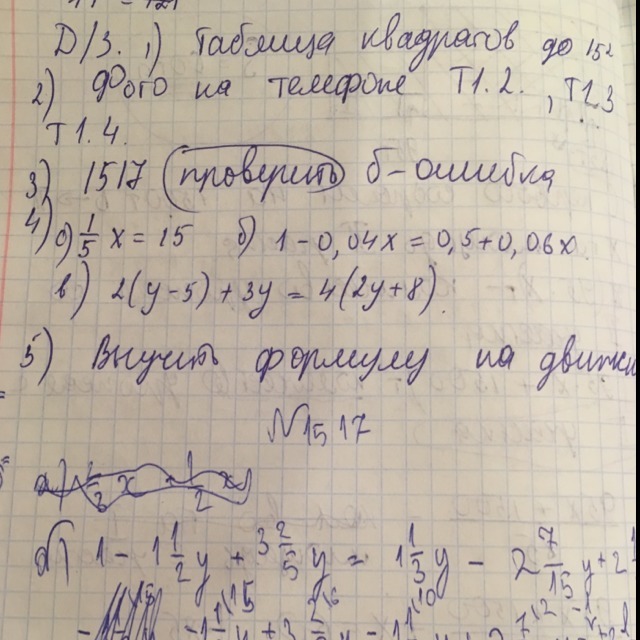 Д/З. 1) Таблица квадратов до 15²
2) Фото на телефоне Т1.2. , Т1.3
Т1.4.
3) 1517 (проверить) б-ошибка
4) а) 1/5 x = 15 б) 1-0,04x = 0,5+0,06x
в) 2(y-5)+3y = 4(2y+8).
5) Выучить формулу на
№1517
б) 1 - 1 1/2 y + 3 2/5 y = 1 1/3 y - 2 7/15 y + 2